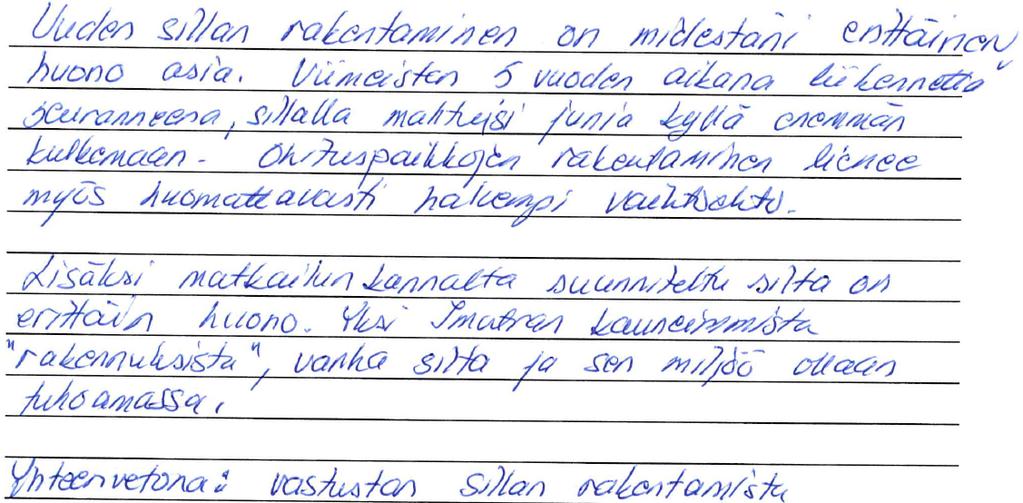 Uuden sillan rakentaminen on mielestäni erittäinen
huono asia. Viimeisten 5 vuoden aikana liikennettä
seuranneena, sillalla mahtuisi junia kyllä enemmän
kulkemaan. Ohituspaikkojen rakentaminen lienee
myös huomattavasti halvempi vaihtoehto.
Lisäksi matkailun kannalta suunniteltu silta on
erittäin huono. Yksi Imatran kauneimmista
"rakennuksista", vanha silta ja sen miljöö ollaan
tuhoamassa.
Yhteenvetona: vastustan sillan rakentamista